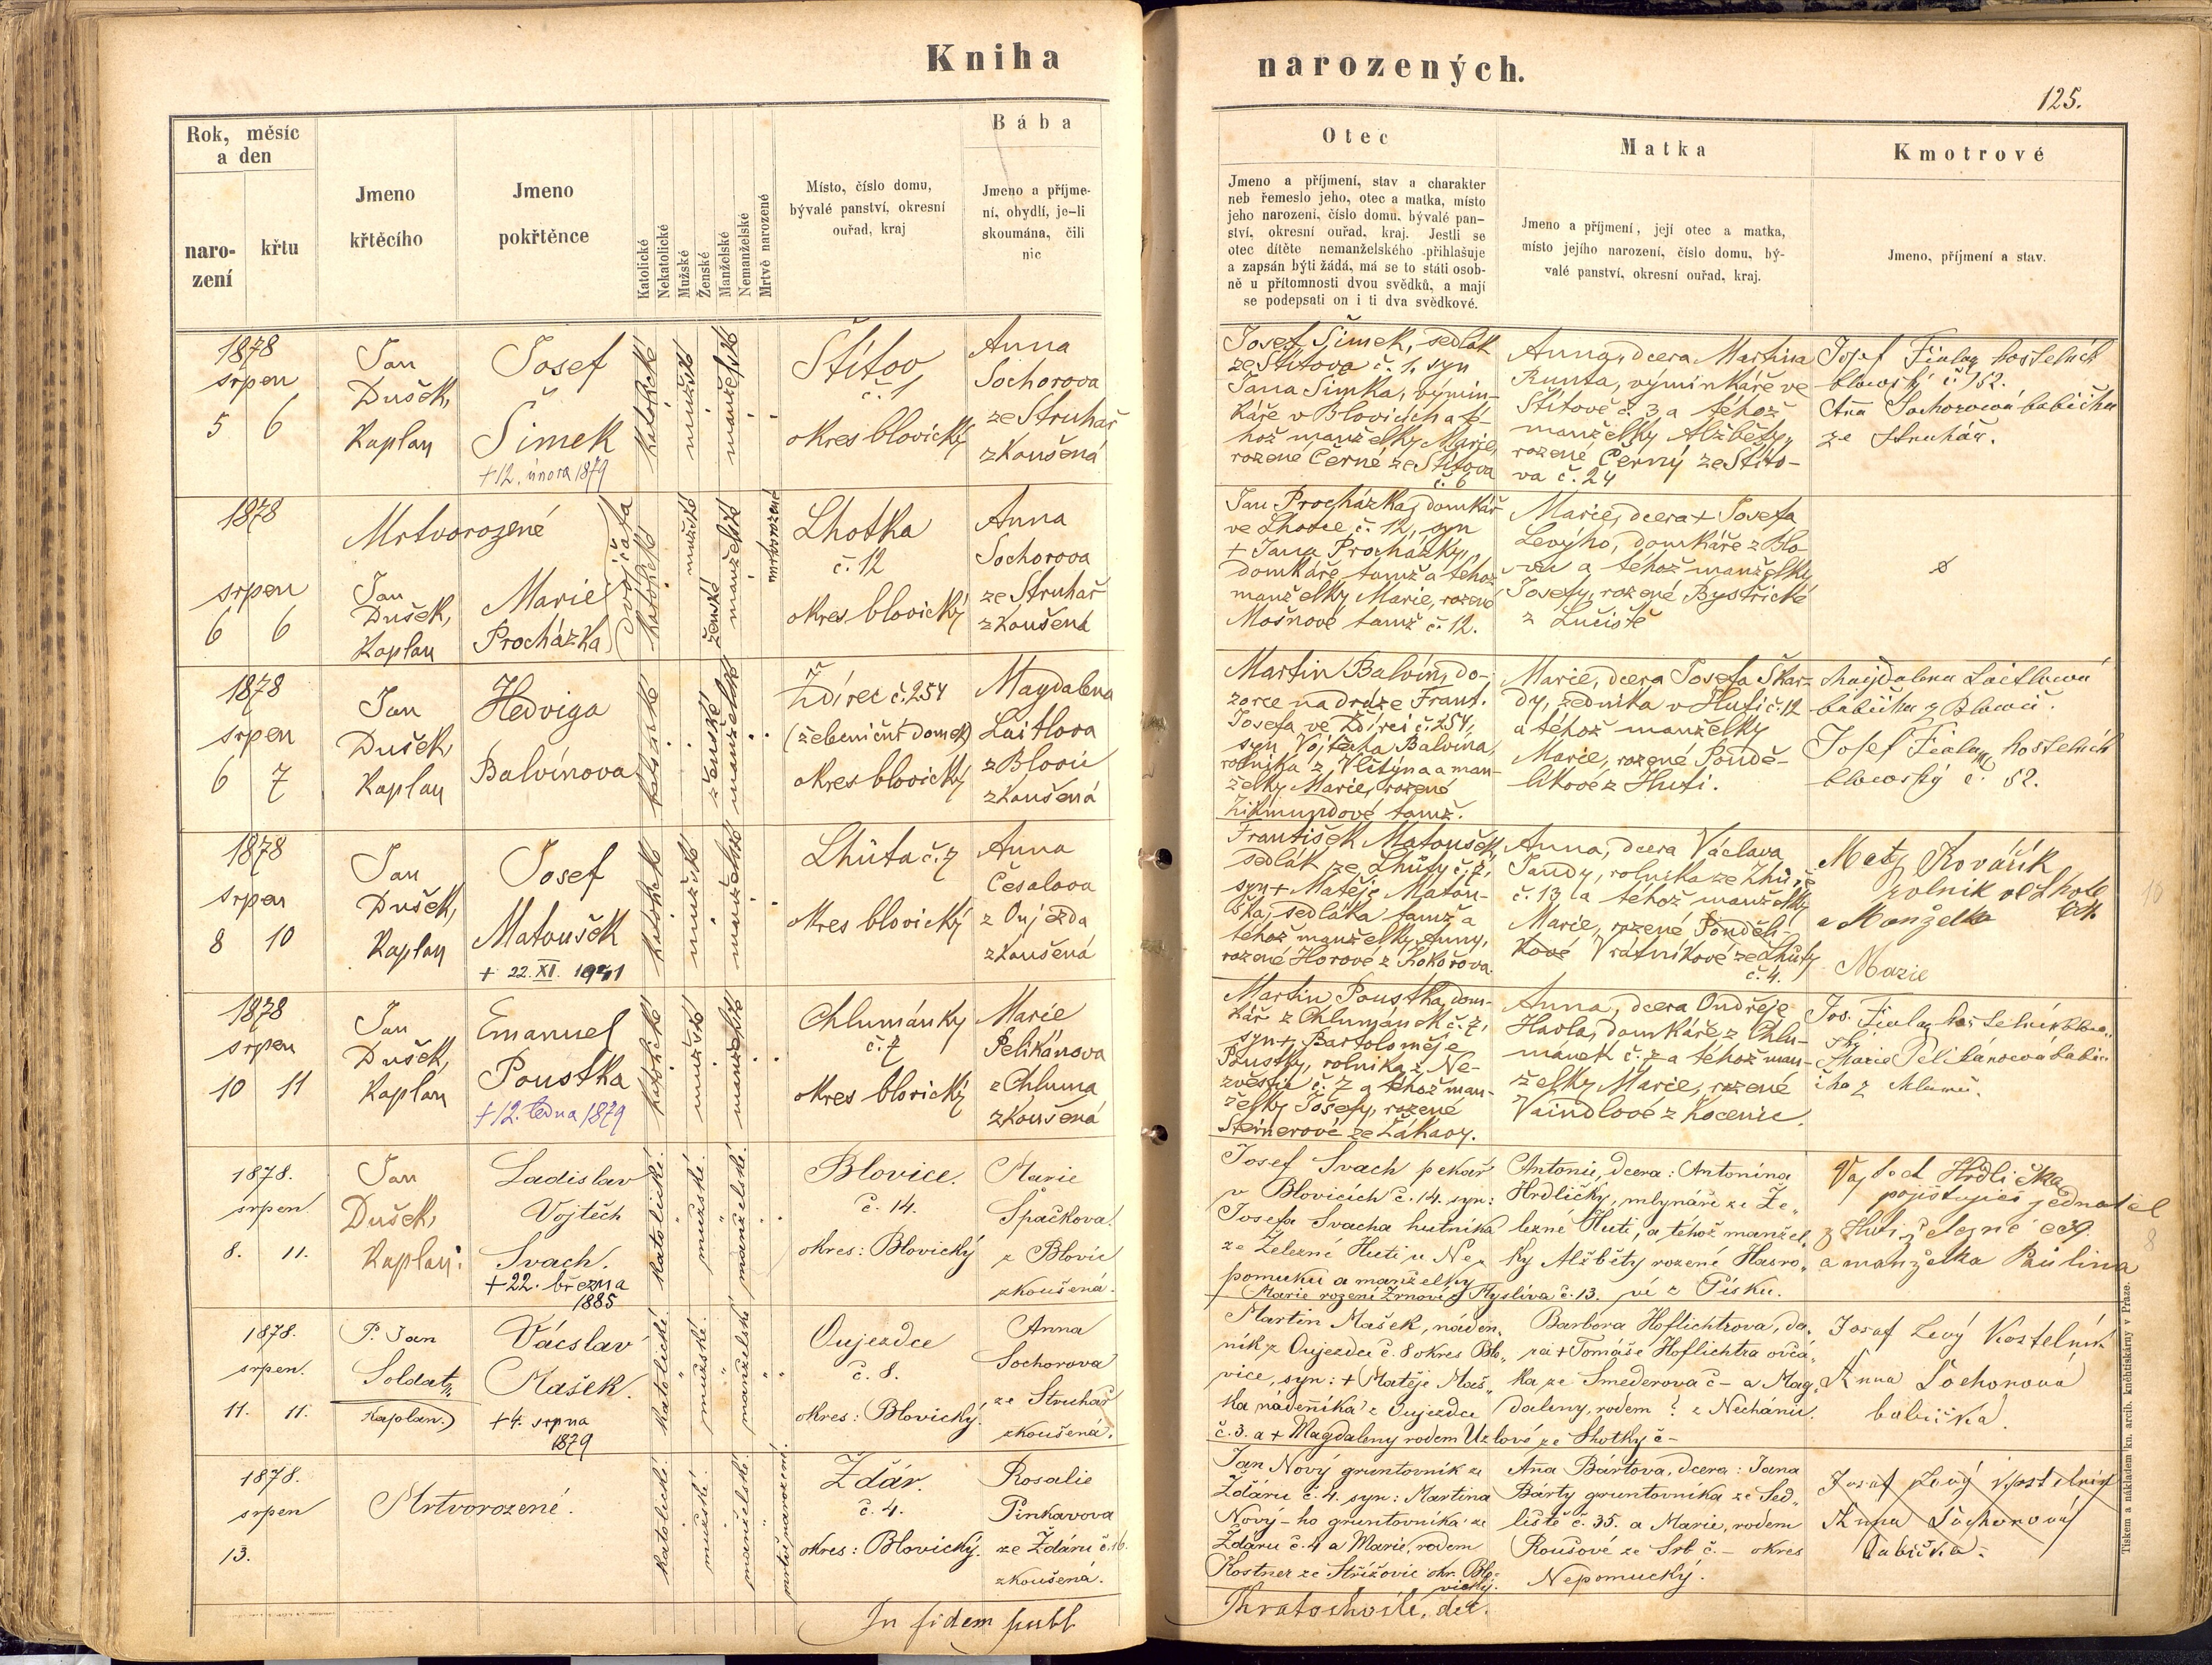 Kniha
narozených.
125.
Rok, měsíc
a den
naro-
zení
křtu
Jmeno
křtěcího
Jmeno
pokřtěnce
Katolické
Nekatolické
Mužské
Ženské
Manželské
Nemanželské
Mrtvě narozené
Místo, číslo domu,
bývalé panství, okresní
ouřad, kraj
Bába
Jmeno a příjme-
ní, obydlí, je-li
skoumána, čili
nic
Otec
Jmeno a příjmení, stav a charakter
neb řemeslo jeho, otec a matka, místo
jeho narození, číslo domu, bývalé pan-
ství, okresní ouřad, kraj. Jestli se
otec dítěte nemanželského přihlašuje
a zapsán býti žádá, má se to státi osob-
ně u přítomnosti dvou svědků, a mají
se podepsati on i ti dva svědkové.
Matka
Jmeno a příjmení, její otec a matka,
místo jejího narození, číslo domu, bý-
valé panství, okresní ouřad, kraj.
Kmotrové
Jmeno, příjmení a stav.
1878
srpen
5 6
Jan
Dušek,
Kaplan
Josef
Šimek
+12. února 1879
katolické
mužské
manželské
Štítov
č. 1
okres blovický
Anna
Sochorova
ze Struhař
zkoušená
Josef Šimek, sedlák
ze Štítova č. 1, syn
Jana Šimka, výmin-
káře v Blovicích a té-
hož manželky Marie,
rozené Černé ze Štítova
č. 6
Anna, dcera Martina
Runta, výminkáře ve
Štítově č. 3 a téhož
manželky Alžběty,
rozené Černý ze Štíto-
va č. 24
Josef Fiala, kostelník
blovický č. 152.
Aña Sochorová babička
ze Struhář.
1878
srpen
6 6
Mrtvorozené
Jan
Dušek,
Kaplan
Marie
Procházka
dvojčata
katolické
mužské
ženské
manželské
mrtvorozené
Lhotka
č. 12
okres blovický
Anna
Sochorova
ze Struhař
zkoušená
Jan Procházka, domkář
ve Lhotce č. 12, syn
+ Jana Procházky,
domkáře tamž a téhož
manželky Marie, rozené
Mošnové tamž č. 12.
Marie, dcera + Josefa
Levýho, domkáře z Blo-
vic a téhož manželky
Josefy, rozené Bystřické
z Lučiště
1878
srpen
6 7
Jan
Dušek,
Kaplan
Hedviga
Balvínova
katolické
ženské
manželské
Ždírec č. 254
okres blovický
Magdalena
Laitlova
z Blovic
zkoušená
Martin Balvín, do-
zorce na dráze Frant.
Josefa ve Ždírci č. 254,
syn Vojtěcha Balvína,
rolníka z Vlčtýna a man-
želky Marie, rozené
Zikmundové tamž.
Marie, dcera Josefa Škar-
dy, zedníka v Huti č. 12
a téhož manželky
Marie, rozené Pondě-
líkové z Huti.
Magdalena Laitlová
babička z Blovic.
Josef Fiala, kostelník
blovický č. 52.
1878
srpen
8 10
Jan
Dušek,
Kaplan
Josef
Matoušek
+ 22. XI. 1941
katolické
mužské
manželské
Lhůta č. 7
okres blovický
Anna
Česalova
z Oujezda
zkoušená
František Matoušek,
sedlák ze Lhůty č. 7,
syn + Matěje Matou-
ška, sedláka tamž a
téhož manželky Anny,
rozené Horové z Kokořova.
Anna, dcera Václava
Jandy, rolníka ze Lhůty
č. 13 a téhož manželky
Marie, rozené Ponděli-
kové Vrátníkové ze Lhůty
č. 4.
Matěj Kovářík
rolník ve Lhotě
a Manželka
Marie
10
1878
srpen
10 11
Jan
Dušek,
Kaplan
Emanuel
Poustka
+12. ledna 1879
katolické
mužské
manželské
Chlumánky
č. 7
okres blovický
Marie
Pelikánova
z Chluma
zkoušená
Martin Poustka, dom-
kář z Chlumánek č. 7,
syn + Bartoloměje
Poustky, rolníka z Ne-
zvěstic č. 7 a téhož man-
želky Josefy, rozené
Steinerové ze Žákavy.
Anna, dcera Ondřeje
Havla, domkáře z Chlu-
mánek č. 7 a téhož man-
želky Marie, rozené
Vaindlové z Kocenic.
Jos. Fiala, kostelník
Marie Pelikánová babi-
čka z Chlumu.
1878.
srpen.
8. 11.
Jan
Dušek,
Kaplan.
Ladislav
Vojtěch
Svach.
+22. března
1885
katolické.
mužské.
manželské.
Blovice.
č. 14.
okres: Blovický
Marie
Špačkova.
z Blovic
zkoušená.
Josef Svach pekař
v Blovicích č. 14. syn:
Josefa Svacha hutníka
ze Železné Huti u Ne-
pomuku a manželky
Marie rozené Zrnové z Myslíva č. 13.
Antonie, dcera: Antonína
Hrdličky, mlynáře ze Že-
lezné Huti, a téhož manžel-
ky Alžběty rozené Hasro-
vé z Písku.
Vojtěch Hrdlička
pojišťující jednatel
z Huti železné č 39.
a manželka Paulina
8
1878.
srpen.
11. 11.
P. Jan
Soldat,
Kaplan.
Vácslav
Mašek.
+4. srpna
1879
katolické.
mužské.
manželské
Oujezdce
č. 8.
okres: Blovický.
Anna
Sochorova
ze Struhař
zkoušená.
Martin Mašek, náden-
ník z Oujezdce č. 8 okres Blo-
vice, syn: + Matěje Maš-
ka nádeníka z Oujezdce
č. 3. a + Magdaleny rodem Uzlové ze Lhotky č-
Barbora Hoflichtrova, dce-
ra + Tomáše Hoflichtra ovčá-
ka ze Smederova č - a Mag-
daleny, rodem ? z Nechánic.
Josef Levý Kostelník
Anna Sochorová
babička.
1878.
srpen
13.
Mrtvorozené.
katolické.
mužské.
manželské.
mrtvě narozené.
Ždár.
č. 4.
okres: Blovický.
Rosalie
Pinkavova
ze Ždáru č. 16
zkoušená.
Jan Nový gruntovník ze
Ždáru č. 4. syn: Martina
Nový-ho gruntovníka ze
Ždáru č. 4 a Marie, rodem
Kostner ze Střížovic okr. Blo-
vický.
Aña Bártova, dcera: Jana
Bárty gruntovníka ze Sed-
liště č. 35. a Marie, rodem
Roušové ze Srb č. - okres
Nepomucký.
Josef Levý Kostelník
Anna Sochorová
babička.
In fidem publ
Kratochvíle, děk.
Tiskem a nákladem kn. arcib. knihtiskárny v Praze.